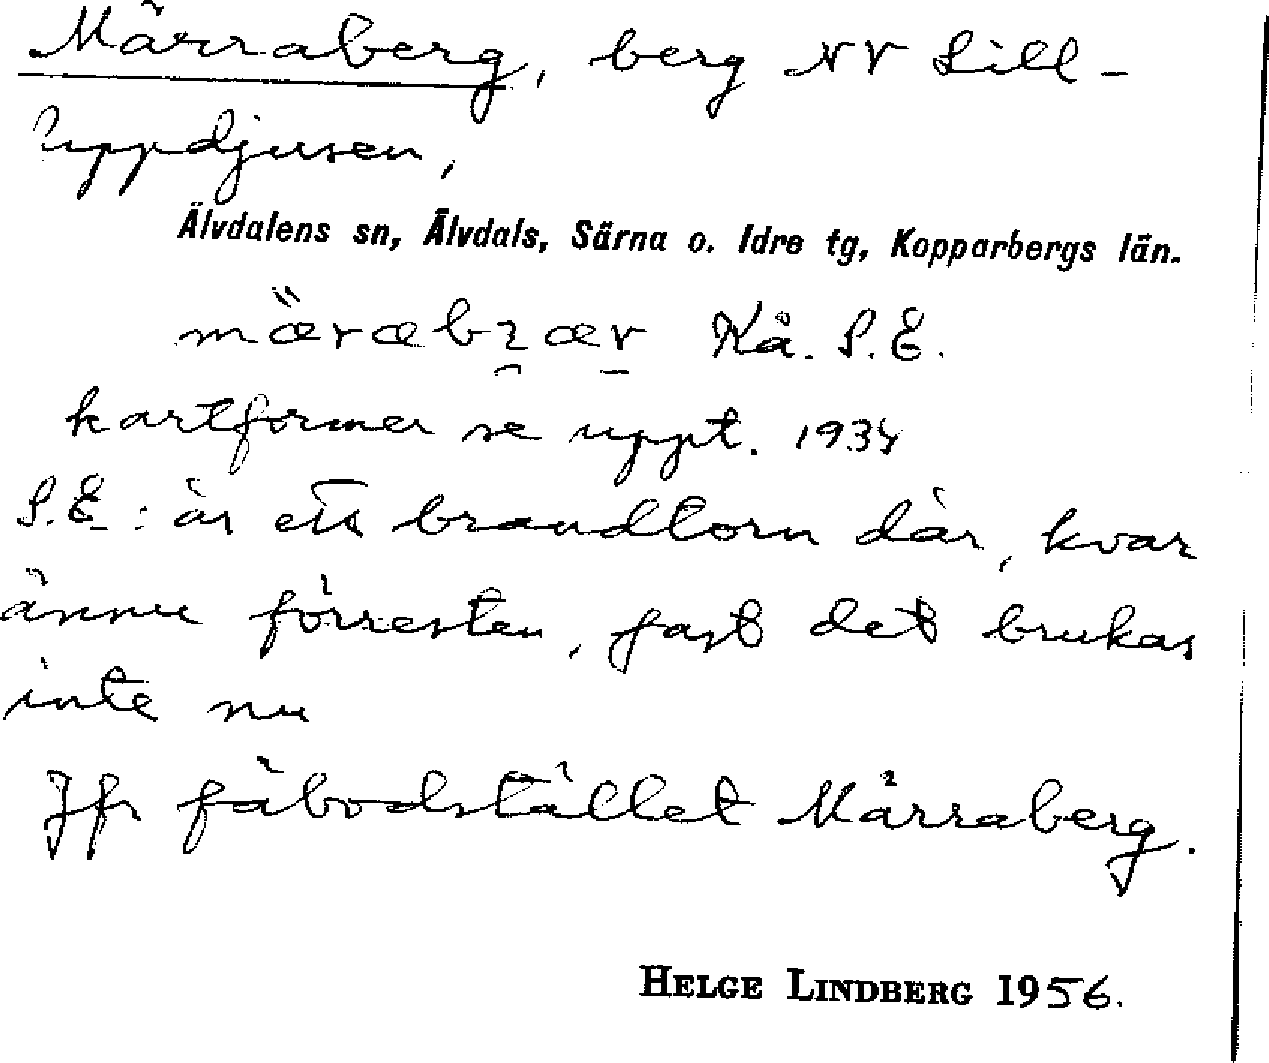 Märraberg, berg NV Lill-
Uppdjusen,
Älvdalens sn, Älvdals, Särna o. Idre tg, Kopparbergs län.
Kå. S. E.
kartformer se uppt. 1934
S. E.: är ett brandtorn där, kvar
ännu förresten, fast det brukas
inte nu
Jfr fäbodstället Märraberg.
HELGE LINDBERG 1956.